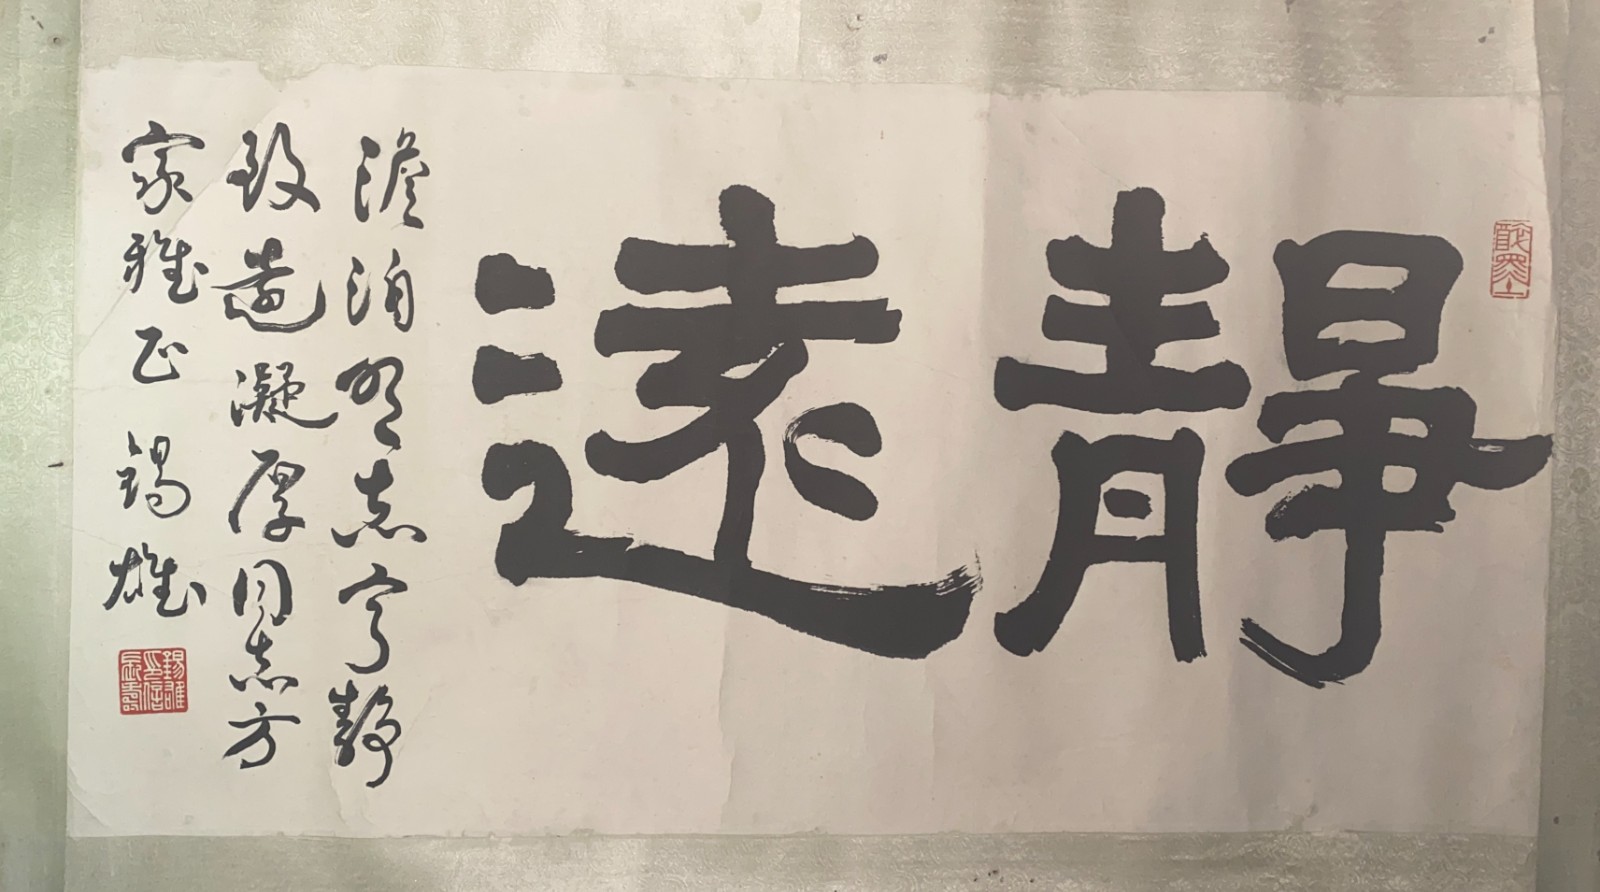 靜遠
澹泊明志寧靜
致遠凝厚同志方
家雅正錫雄
錫雄
印信
長壽